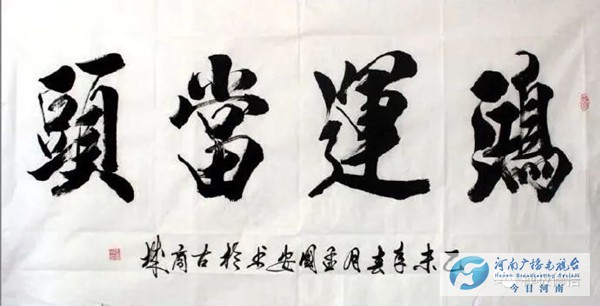 鴻運當頭
乙未年春月孟國安书於古商城
河南广播电视台
今日河南